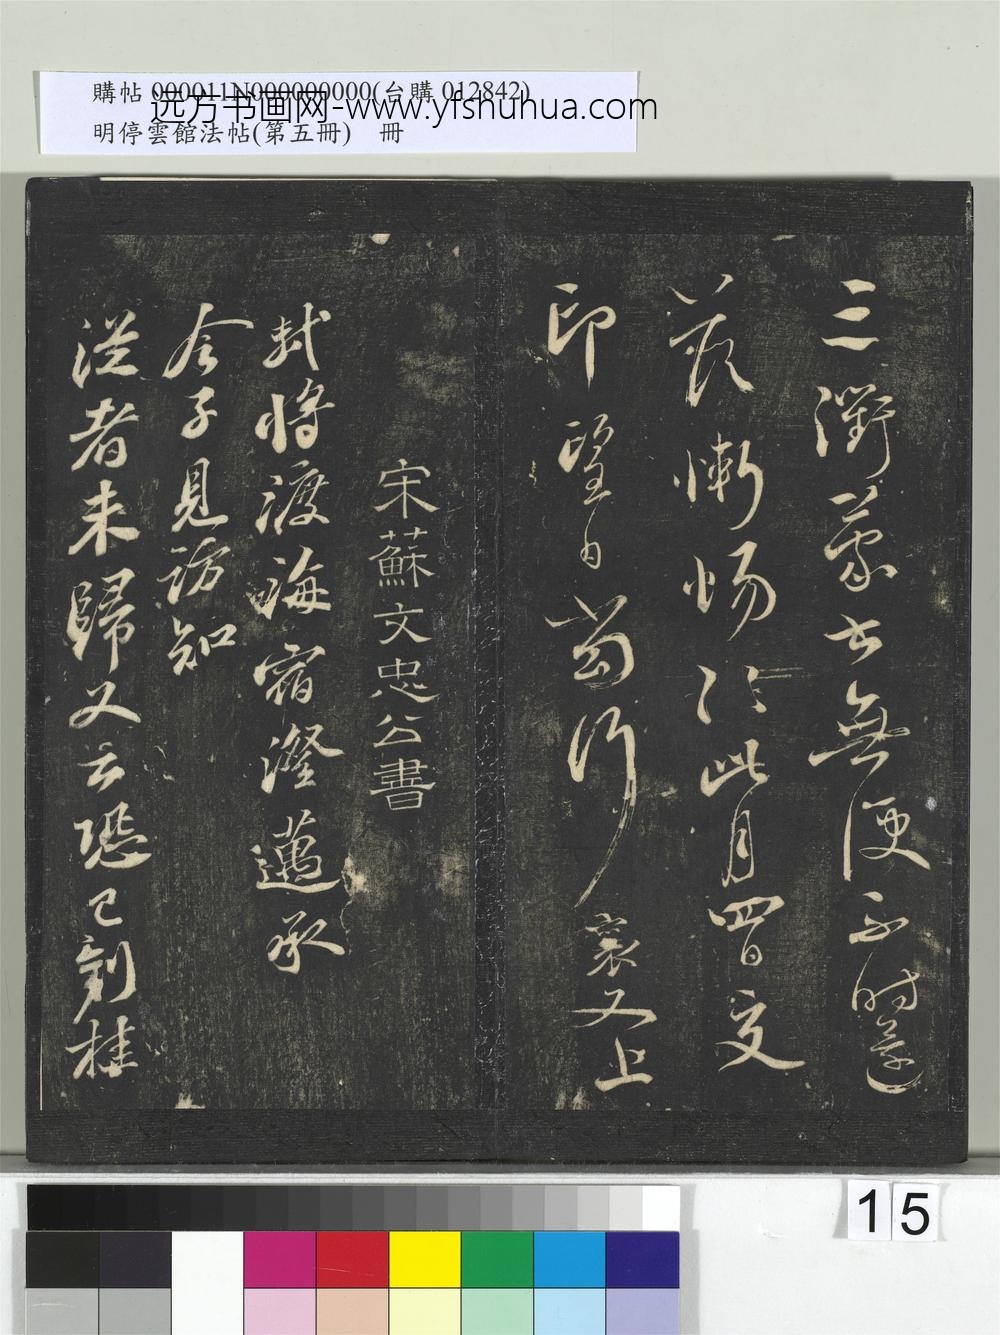 購帖 000011N000000000(台購 012842)
远方书画网-www.yfshuhua.com
明停雲館法帖(第五冊) 冊
三衢蒙書無便不時還
荅慚惕〻〻此月四日交
印望日當行 襄又上
宋蘇文忠公書
軾將渡海宿澄邁承
令子見訪知
從者未歸又云恐已到桂
15